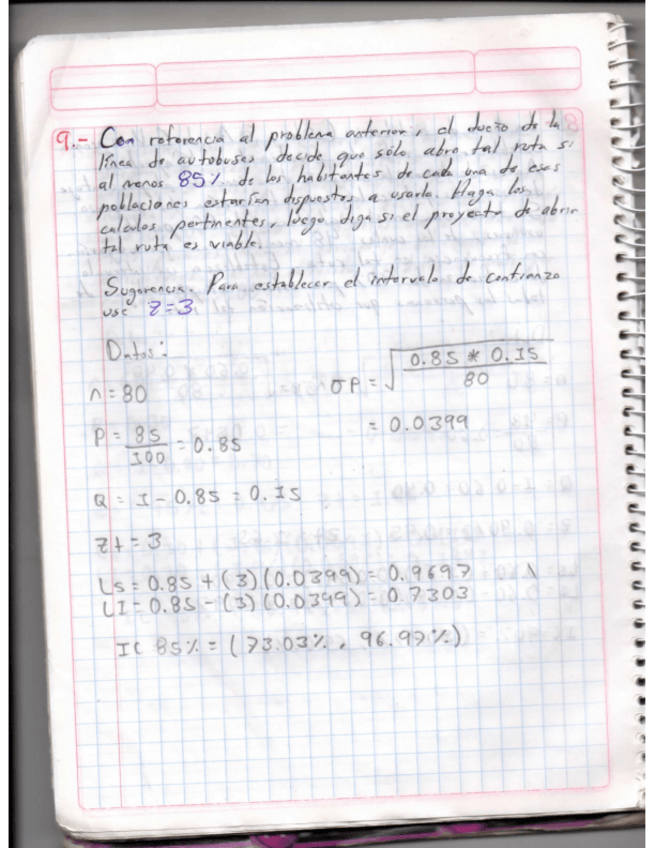 9.- Con referencia al problema anterior, el dueño de la
línea de autobuses decide que sólo abre tal ruta si
al menos 85% de los habitantes de cada una de esas
poblaciones estarían dispuestos a usarla. Haga los
calculos pertinentes, luego diga si el proyecto de abrir
tal ruta es viable.
Sugerencia. Para establecer el intervalo de confianza
use Z=3
Datos:
n = 80
σP = √(0.85 * 0.15 / 80)
= 0.0399
P = 85/100 = 0.85
Q = 1 - 0.85 = 0.15
Zt = 3
Ls = 0.85 + (3)(0.0399) = 0.9697
LI = 0.85 - (3)(0.0399) = 0.7303
IC 85% = (73.03%, 96.97%)